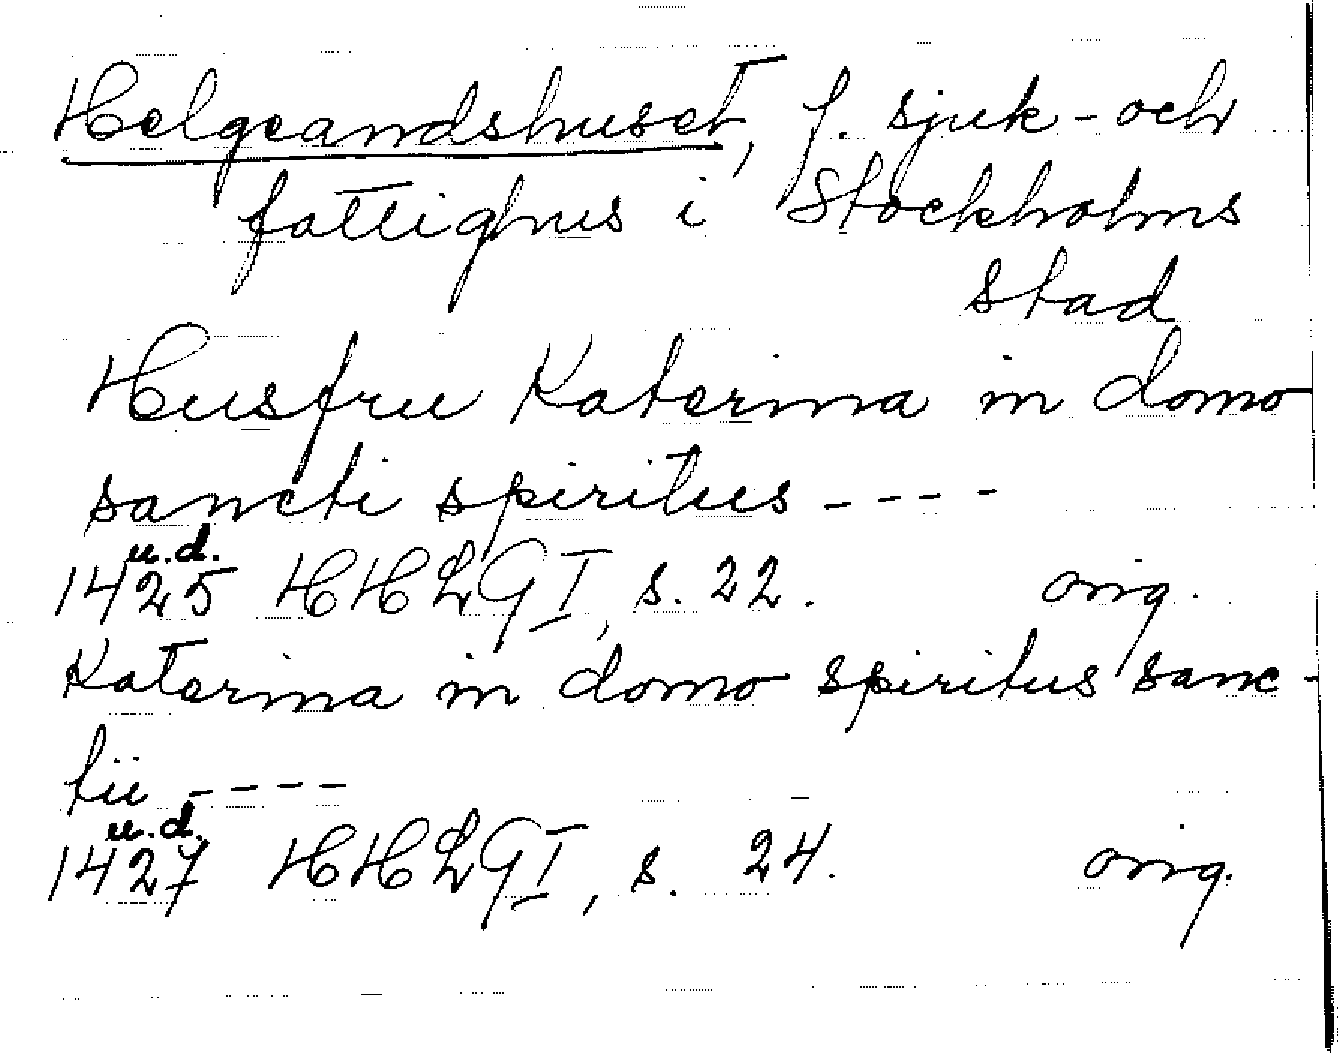 Helgeandshuset, f. sjuk- och
fattighus i Stockholms
stad
Husfru Katerina in domo
sancti spiritus - - - -
u.d.
1425 HHLG I, s. 22. orig.
Katerina in domo spiritus sanc-
tii - - - -
u.d.
1427 HHLG I, s. 24. orig.